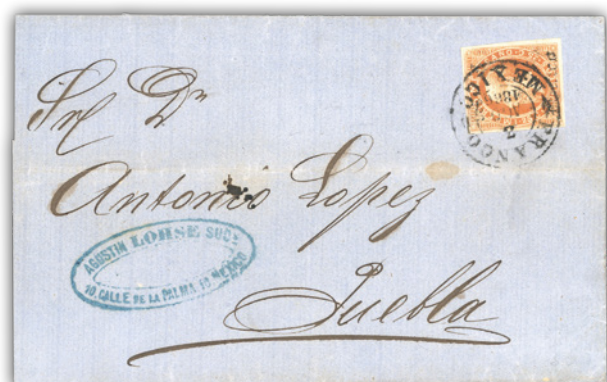 Sr. Dn
Antonio Lopez
Puebla
AGUSTIN LOHSE SUC
10. CALLE DE LA PALMA 10 MEXICO
FRANCO MEXICO